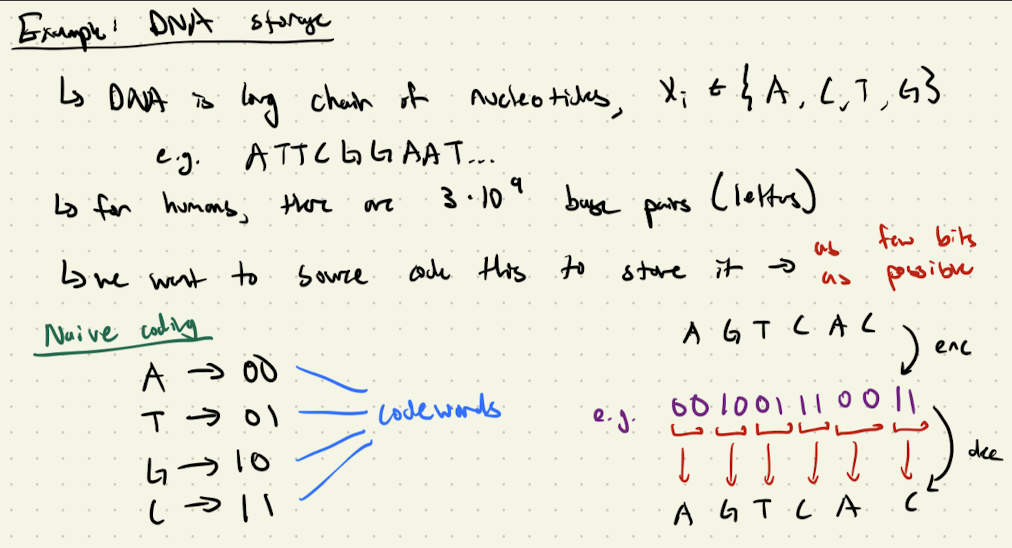 Example: DNA storage
↳ DNA is long chain of nucleotides, Xi ∈ {A, C, T, G}
e.g. ATTCGGAAT...
↳ for humans, there are 3·10^9 base pairs (letters)
↳ we want to source code this to store it → as few bits
as possible
Naive coding
A → 00
T → 01
G → 10
C → 11
codewords
A G T C A C
enc
e.g. 00 10 01 11 00 11
dec
A G T C A C